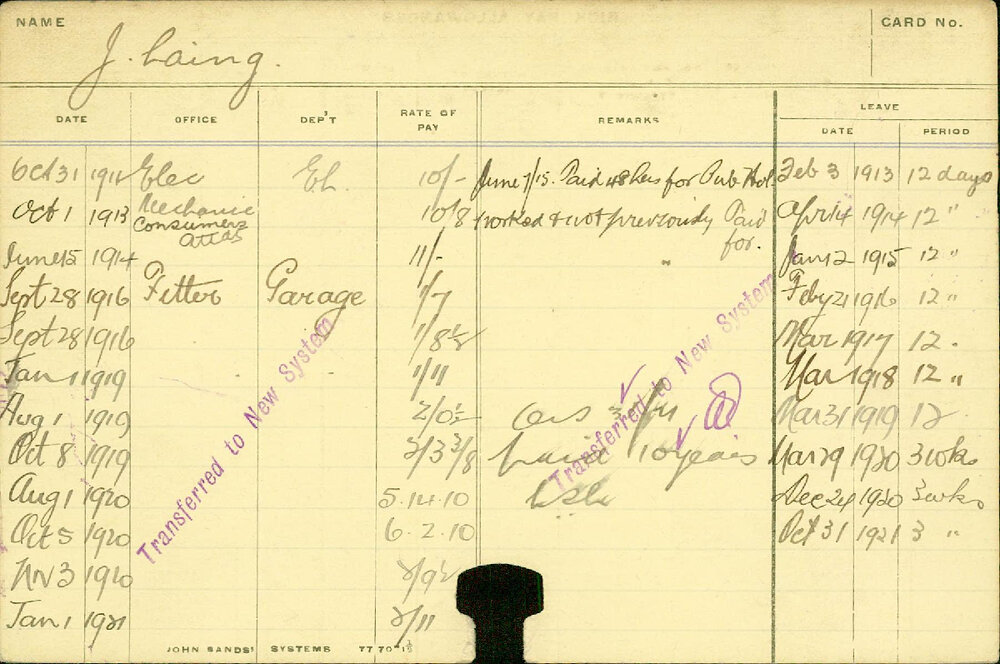 NAME
CARD No.
J. Laing.
DATE OFFICE DEP'T RATE OF PAY REMARKS LEAVE
DATE PERIOD
Oct 31 1911 Elec El. 10/- June 7/15. Paid 48 hrs for Pub Hol. Feb 3 1913 12 days
Oct 1 1913 Mechanic 10/8 worked & not previously Paid April 4 1914 12 "
Consumers
Attds for.
June 15 1914 11/- " Jan 12 1915 12 "
Sept 28 1916 Fitter Garage 1/7 Feby 21 1916 12 "
Sept 28 1916 1/8½ Mar 1917 12 "
Jan 1 1919 1/11 Mar 1918 12 "
Aug 1 1919 2/0½ Mar 31 1919 12
Oct 8 1919 2/3 3/8 10 years Mar 29 1920 3 wks
Aug 1 1920 5.14.10 Dec 24 1920 3 wks
Oct 5 1920 6.2.10 Oct 31 1921 3 "
Nov 3 1920 2/9½
Jan 1 1921 2/11
Transferred to New System
Transferred to New System
JOHN SANDS' SYSTEMS 7770